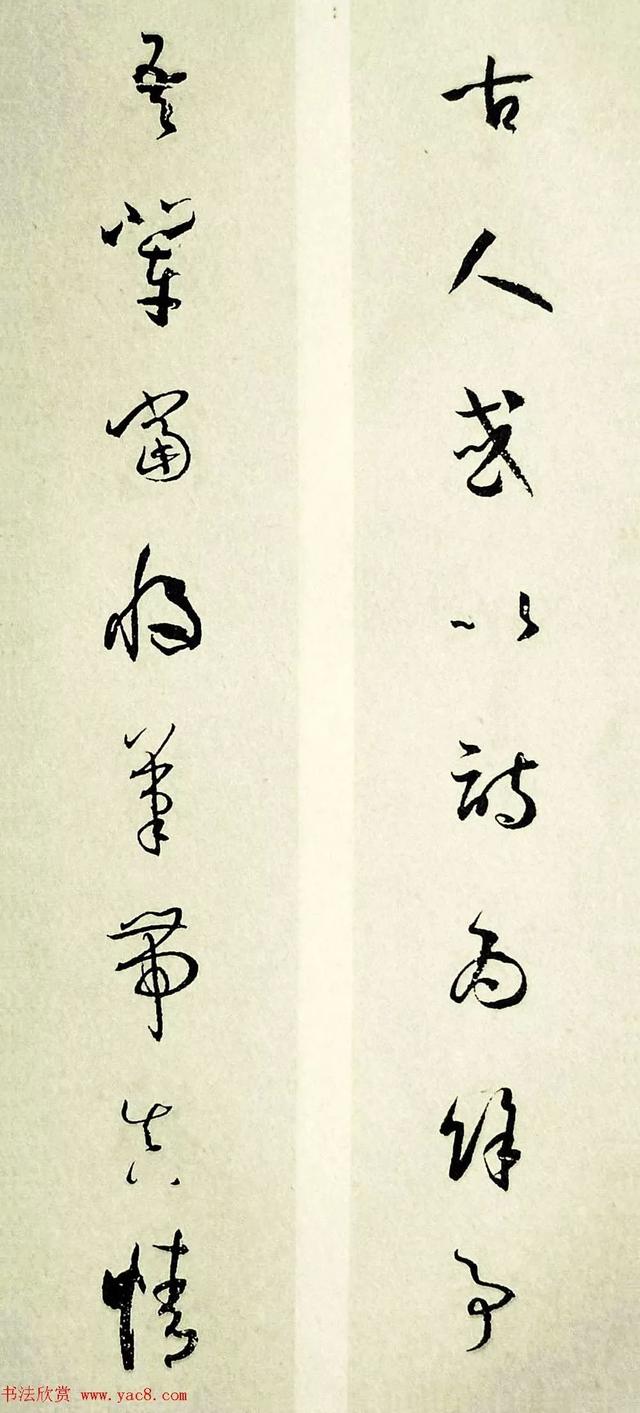 古人或以詩為餘事
吾輩當將筆帶真情
书法欣赏 www.yac8.com